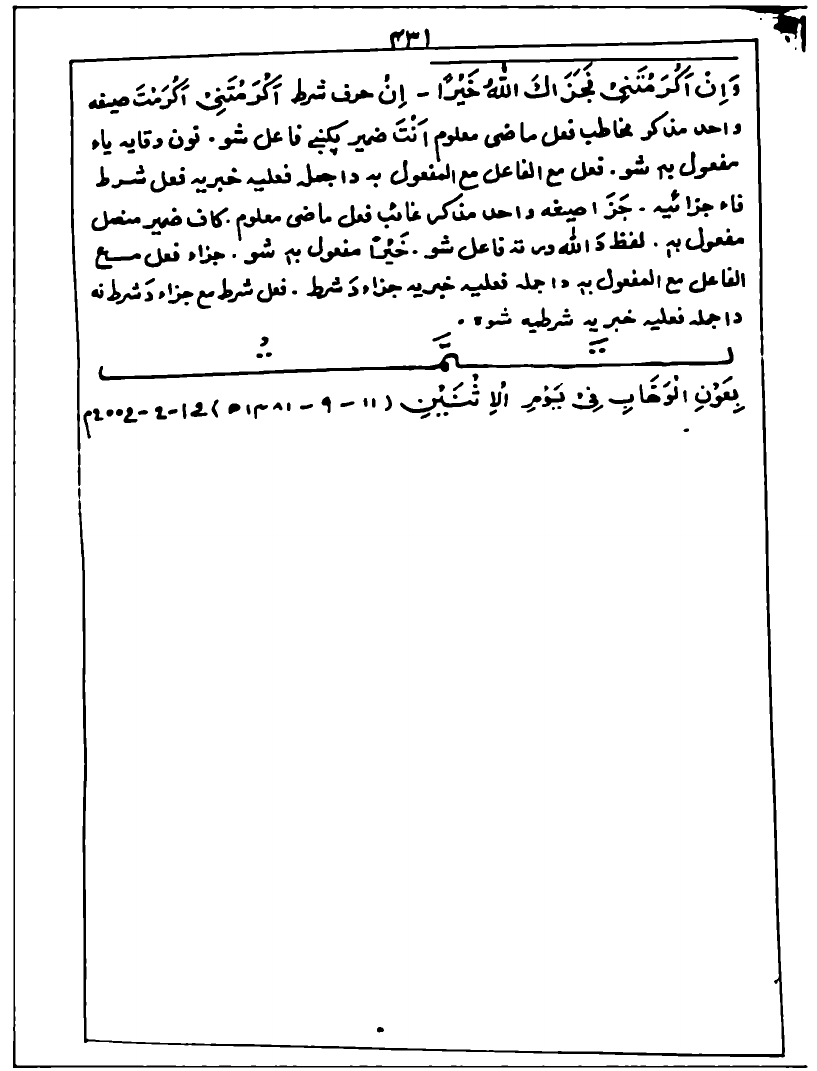 ۴۳۱
وَاِنْ اَكْرَمْتَنِىْ فَجَزَاكَ اللّٰهُ خَيْرًا - اِنْ حرف شرط اَكْرَمْتَنِىْ اَكْرَمْتَ صيغه
واحد مذکر مخاطب فعل ماضی معلوم اَنْتَ ضمیر پکښے فاعل شو. نون وقایه یاء
مفعول بہٖ شو. فعل مع الفاعل مع المفعول بہ دا جملہ فعلیہ خبریہ فعل شرط
فاء جزائیہ - جَزَا صیغہ واحد مذکر غائب فعل ماضی معلوم. کاف ضمیر متصل
مفعول بہٖ. لفظ دَ اللّٰه ورتہ فاعل شو. خَيْرًا مفعول بہٖ شو. جزاء فعل مع
الفاعل مع المفعول بہٖ دا جملہ فعلیہ خبریہ جزاء دَ شرط. فعل شرط مع جزاء دَ شرط نہ
دا جملہ فعلیہ خبریہ شرطیہ شوہ.
تَمَّتْ
بِعَوْنِ الْوَهَّابِ فِىْ يَوْمِ الْاِثْنَيْنِ (۱۱ - ۹ - ۱۳۸۱ ھ)